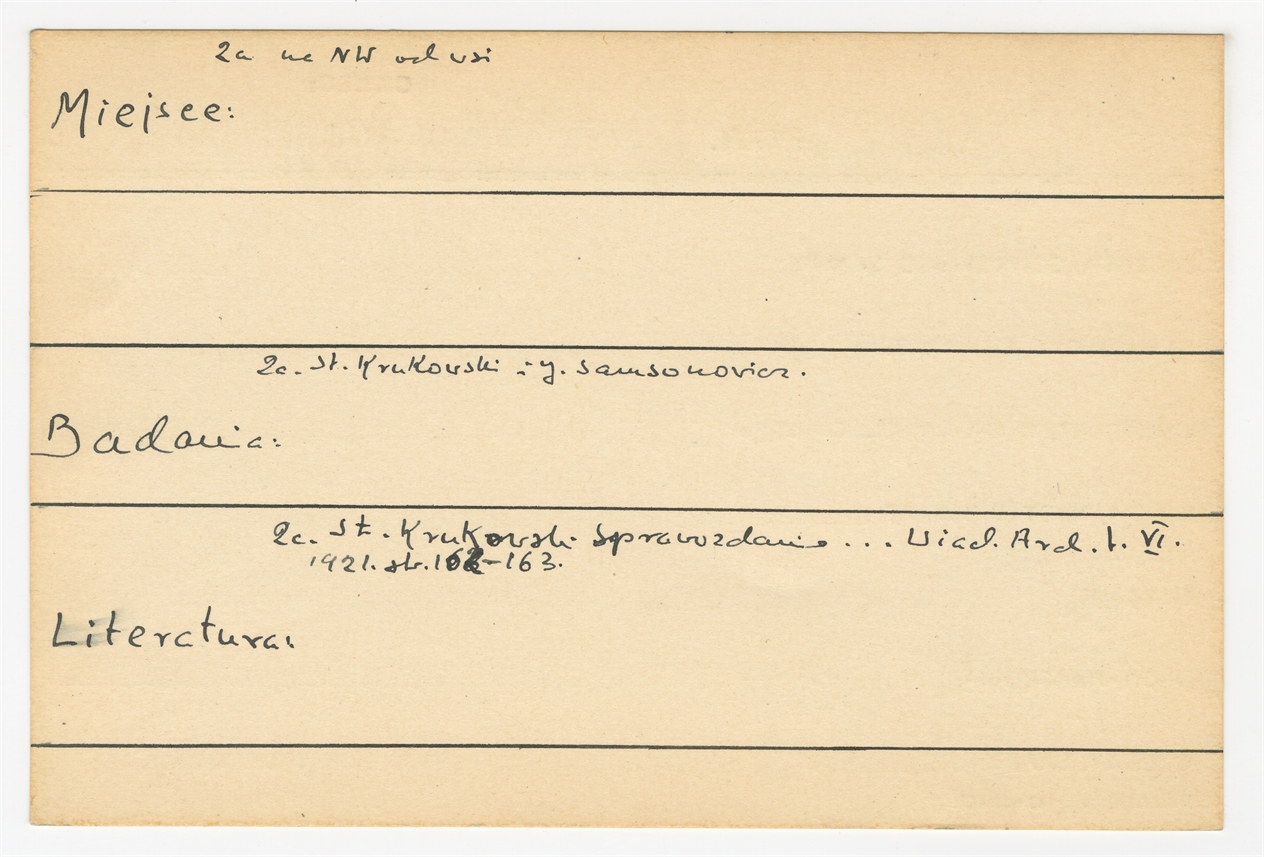 2a na NW od wsi
Miejsce:
2a. St. Krukowski i J. Samsonowicz.
Badania:
2a. St. Krukowski Sprawozdanie ... Wiad. Arch. t. VI.
1921. str. 162-163.
Literatura: